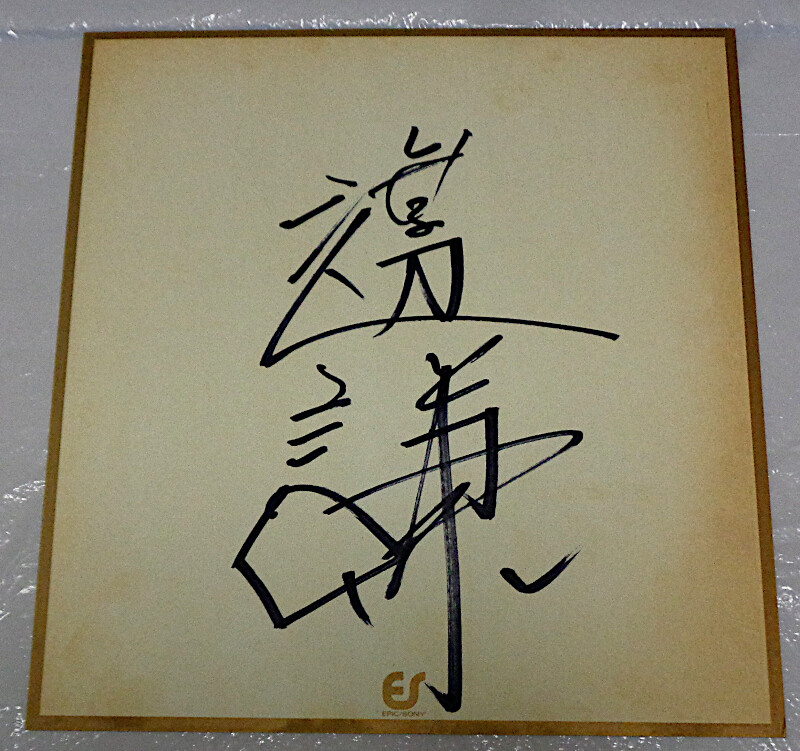 渡辺
謙
ES
EPIC/SONY